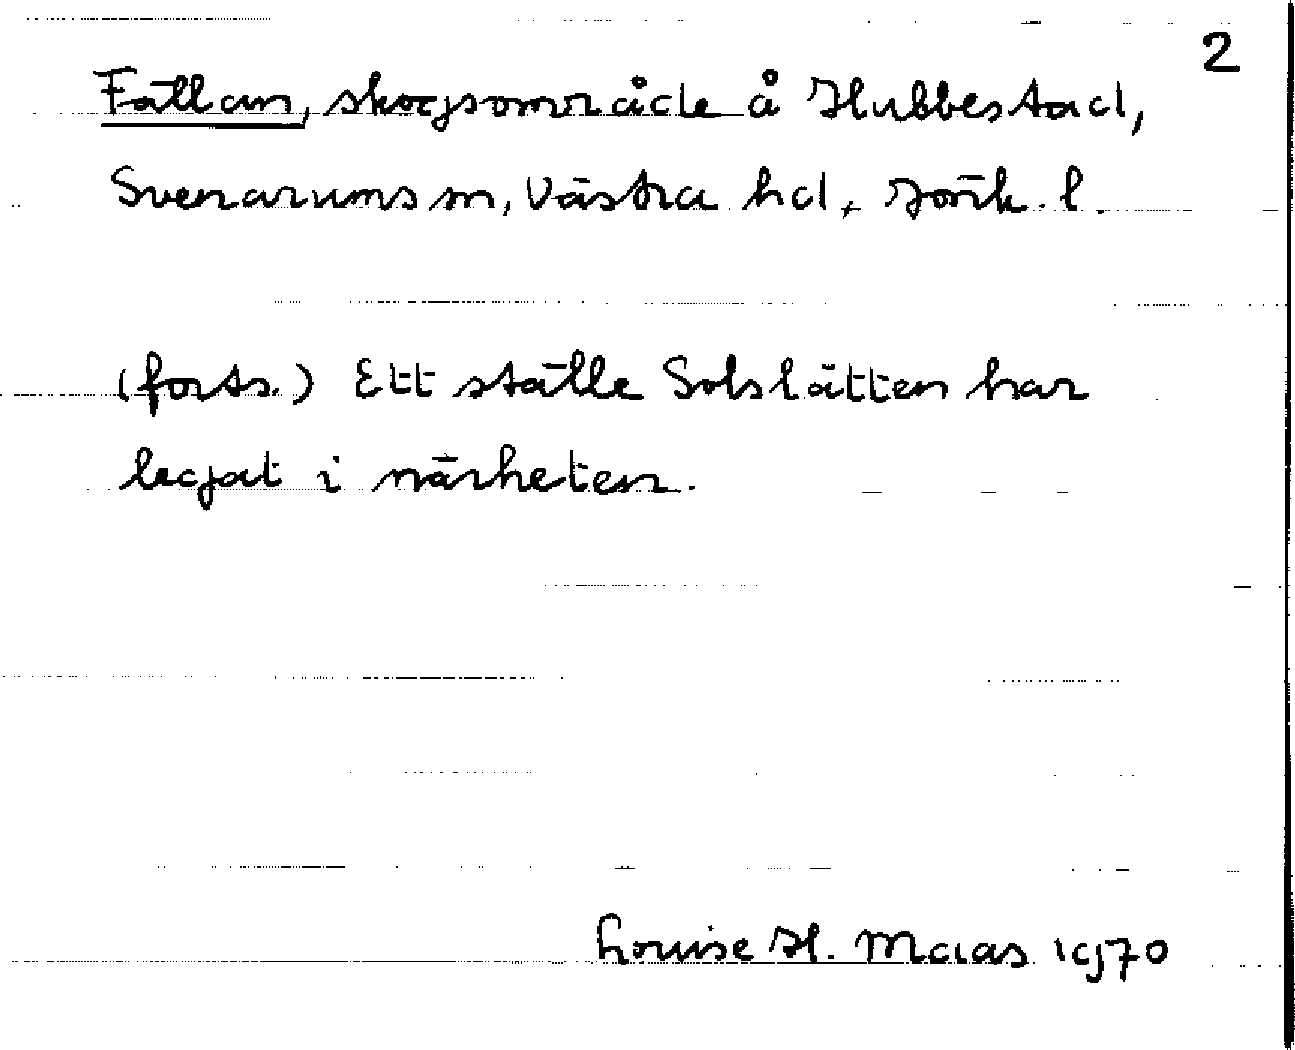 2
Fällan, skogsområde å Hubbestad,
Svenarums sn, Västra hd, Jönk. l.
(forts.) Ett ställe Solslätten har
legat i närheten.
Louise H. Maas 1970